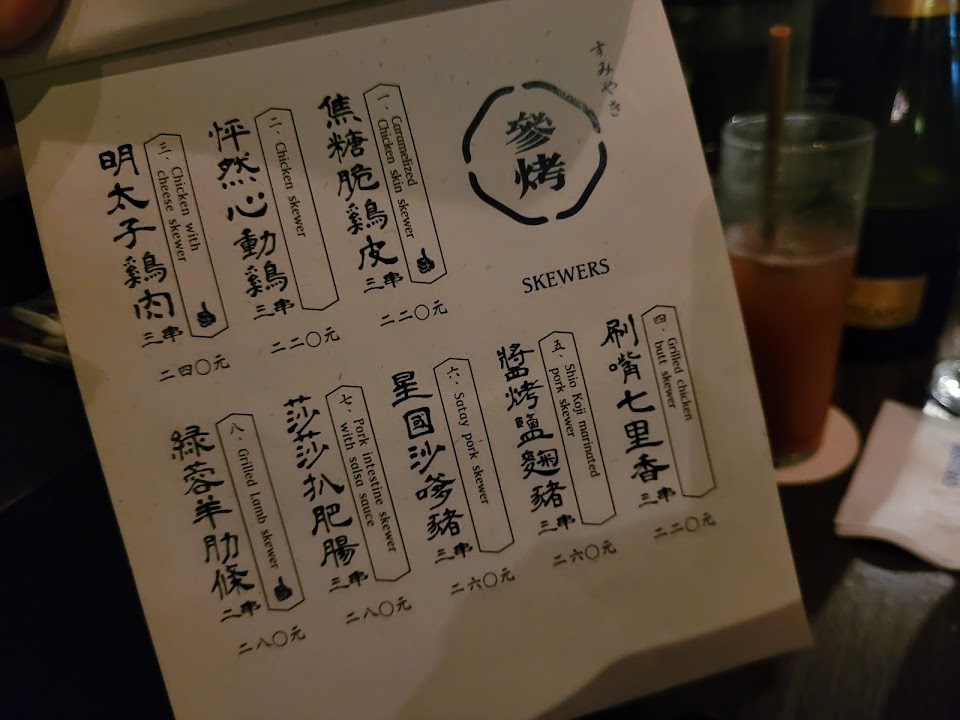 すみやき
參烤
SKEWERS
一、Caramelized
Chicken skin skewer
焦糖脆雞皮三串
二二〇元
二、Chicken skewer
怦然心動雞三串
二二〇元
三、Chicken with
cheese skewer
明太子雞肉三串
二四〇元
四、Grilled chicken
butt skewer
刷嘴七里香三串
二二〇元
五、Shio Koji marinated
pork skewer
醬烤鹽麴豬三串
二六〇元
六、Satay pork skewer
星國沙嗲豬三串
二六〇元
七、Pork intestine skewer
with salsa sauce
莎莎扒肥腸三串
二八〇元
八、Grilled Lamb skewer
綠蓉羊肋條二串
二八〇元